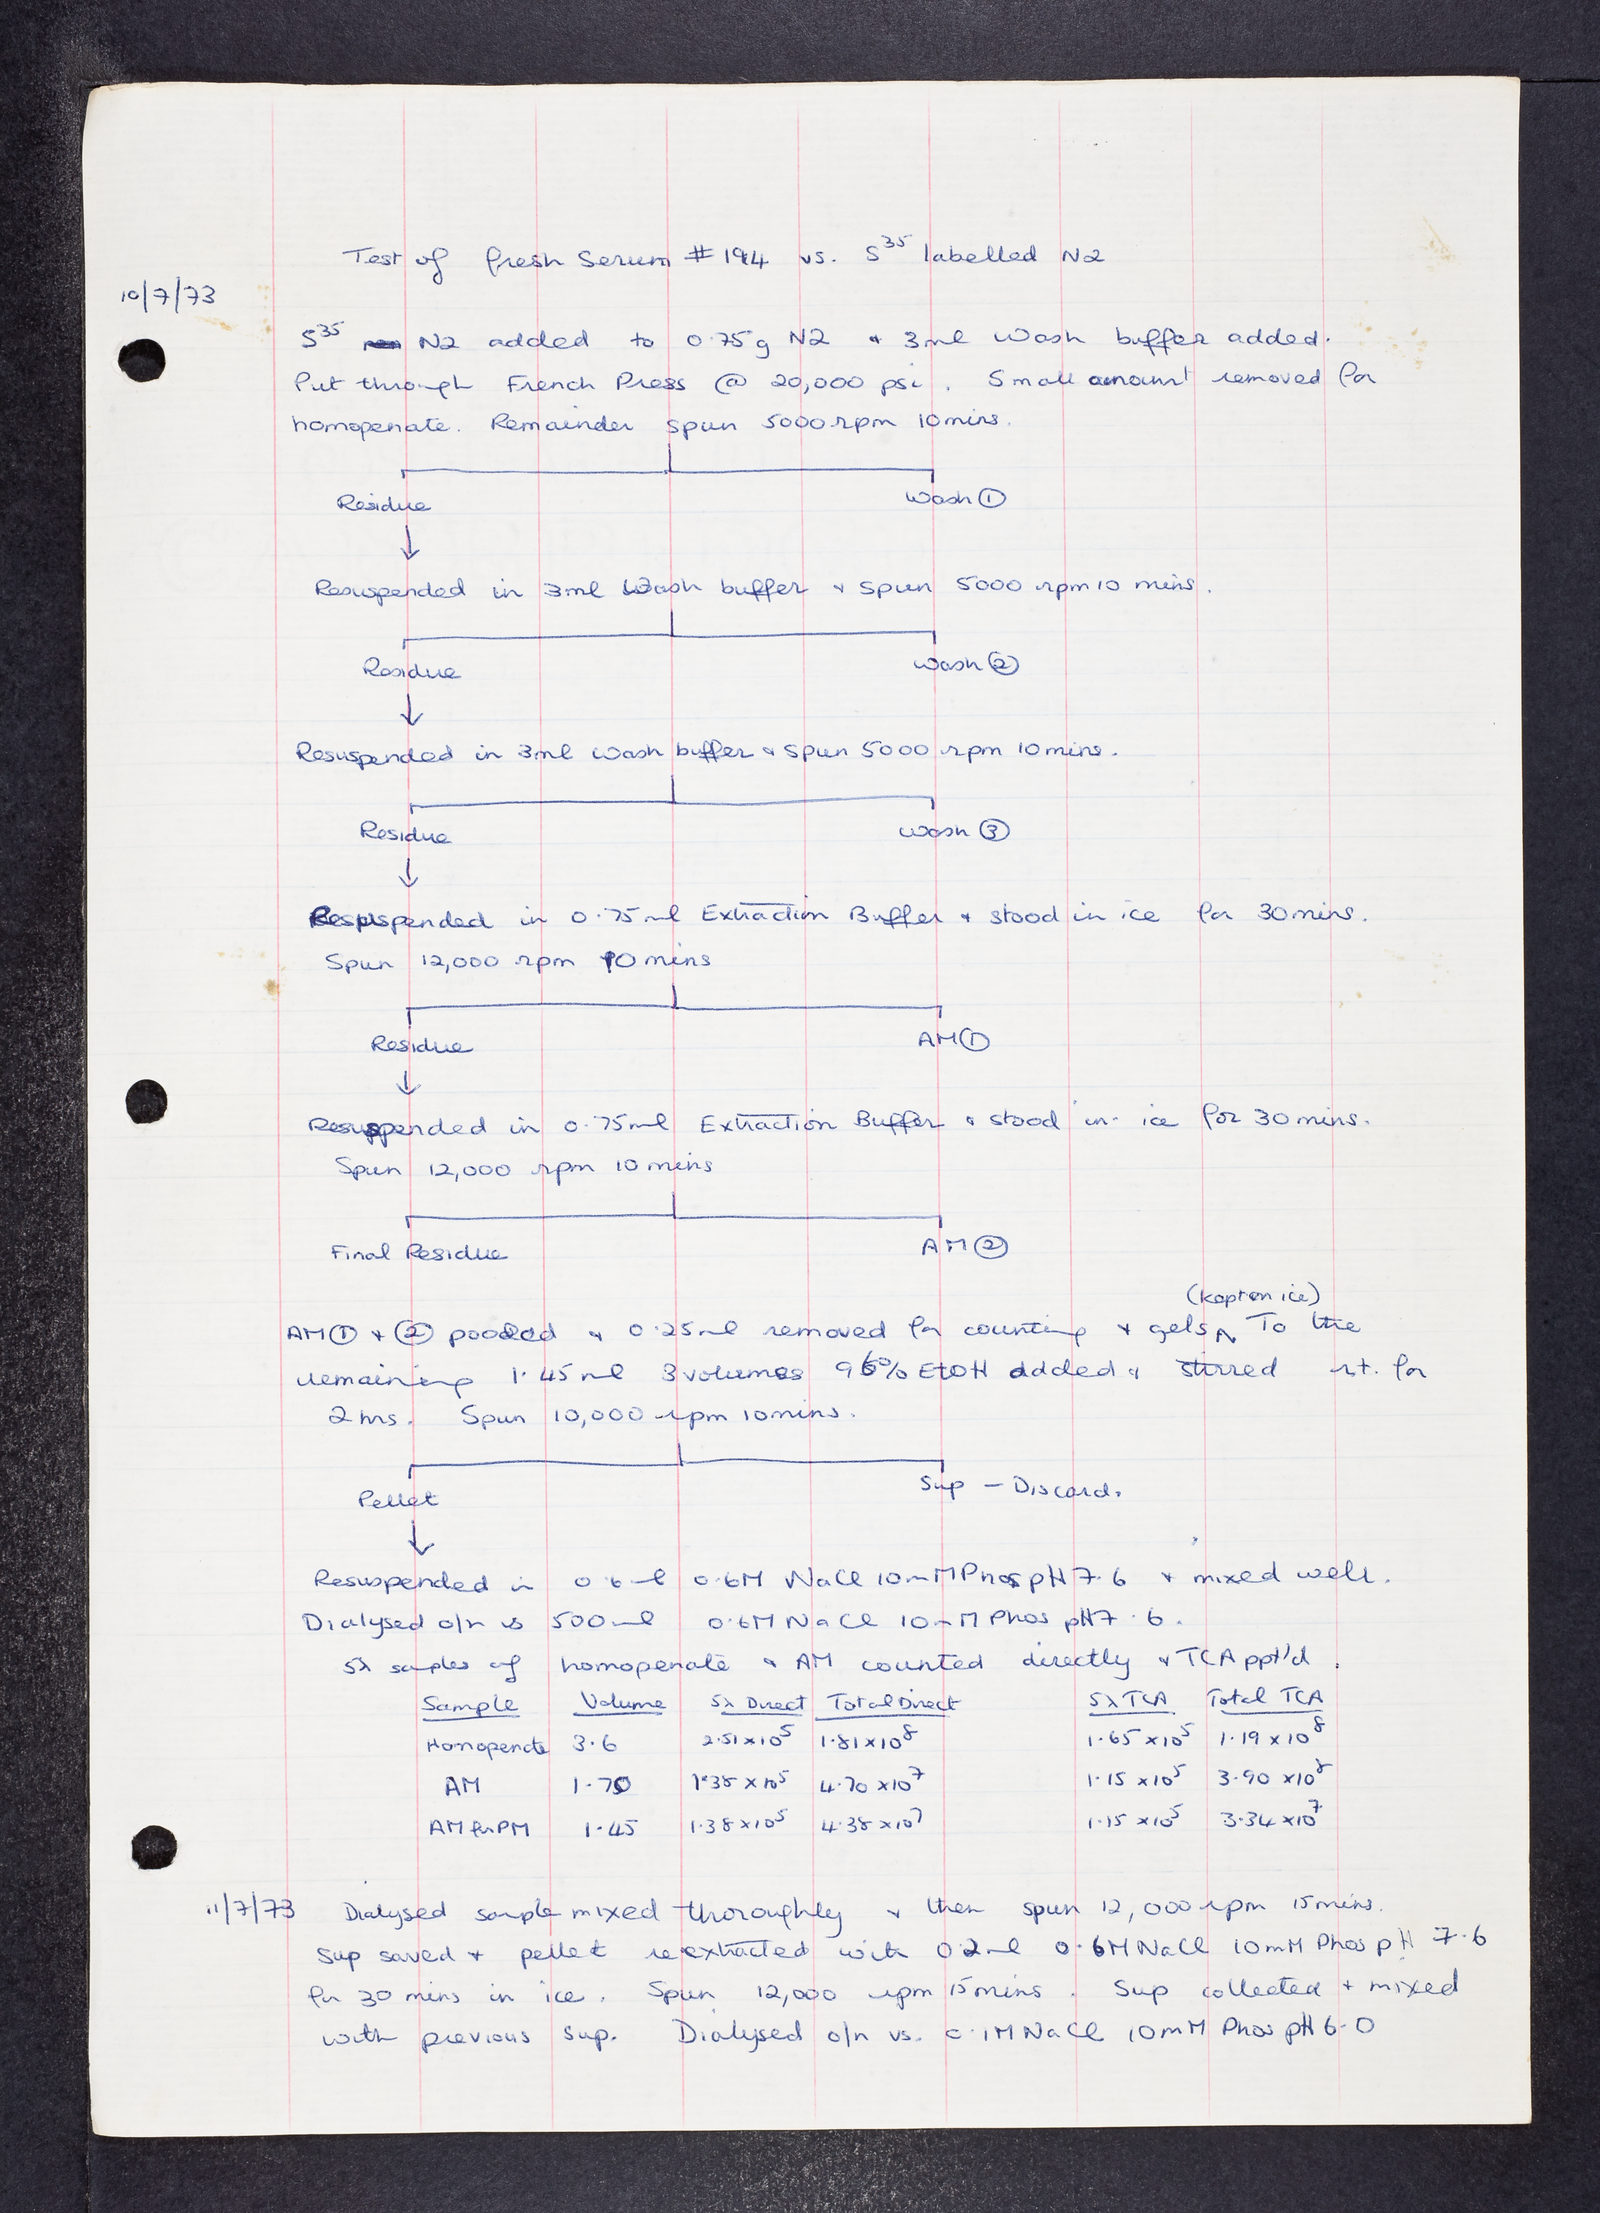 Test of fresh Serum # 194 vs. S35 labelled N2
10/7/73
S35 N2 added to 0.75g N2 + 3ml Wash buffer added.
Put through French Press @ 20,000 psi. Small amount removed for
homogenate. Remainder spun 5000 rpm 10 mins.
Residue Wash ①
Resuspended in 3ml Wash buffer + spun 5000 rpm 10 mins.
Residue Wash ②
Resuspended in 3ml Wash buffer + spun 5000 rpm 10 mins.
Residue Wash ③
Resuspended in 0.75ml Extraction Buffer + stood in ice for 30 mins.
Spun 12,000 rpm 10 mins
Residue AM ①
Resuspended in 0.75ml Extraction Buffer + stood in ice for 30 mins.
Spun 12,000 rpm 10 mins
Final Residue AM ②
(kept on ice)
AM ① + ② pooled + 0.25ml removed for counting + gels. To the
remaining 1.45ml 3 volumes EtOH added + stirred r.t. for
2 hrs. Spun 10,000 rpm 10 mins.
Pellet Sup - Discard.
Resuspended in 0.6ml 0.6M NaCl 10mM Phos pH 7.6 + mixed well.
Dialysed o/n vs 500ml 0.6M NaCl 10mM Phos pH 7.6.
5λ samples of homogenate + AM counted directly + TCA ppt'd.
Sample Volume 5λ Direct Total Direct 5λ TCA Total TCA
Homogenate 3.6 2.51 x 105 1.81 x 108 1.65 x 105 1.19 x 108
AM 1.70 1.38 x 105 4.70 x 107 1.15 x 105 3.90 x 108
AM for PM 1.45 1.38 x 105 4.38 x 107 1.15 x 105 3.34 x 107
11/7/73 Dialysed sample mixed thoroughly + then spun 12,000 rpm 15 mins.
Sup saved + pellet reextracted with 0.2ml 0.6M NaCl 10mM Phos pH 7.6
for 30 mins in ice. Spun 12,000 rpm 15 mins. Sup collected + mixed
with previous sup. Dialysed o/n vs. 0.1M NaCl 10mM Phos pH 6.0